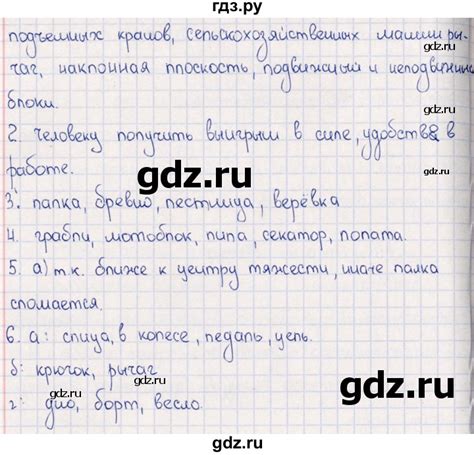 гдз.ру
подъемных кранов, сельскохозяйственных машин ры-
чаг, наклонная плоскость, подвижный и неподвижны
блоки.
2. человеку получить выигрыш в силе, удобства в
работе.
3. палка, бревно, лестница, верёвка
4. грабли, мотоблок, пила, секатор, лопата.
5. а) т.к. ближе к центру тяжести, иначе палка
сломается.
6. а: спица, в колесе, педаль, цепь.
б: крючок, рычаг
г: дно, борт, весло.
gdz.ru
gdz.ru
gdz.ru
gdz.ru
gdz.ru
gdz.ru
gdz.ru
gdz.ru